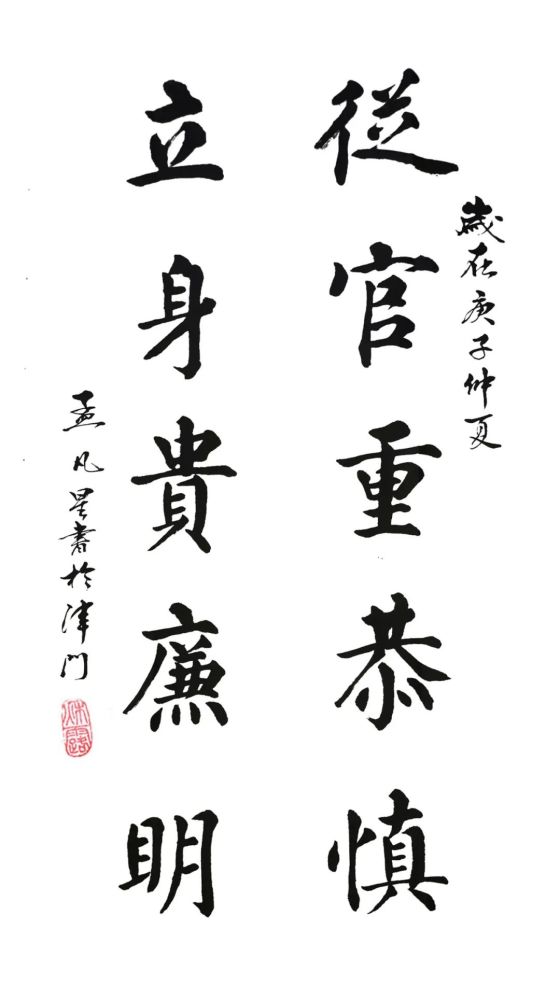 歲在庚子仲夏
從官重恭慎
立身貴廉明
孟凡星書於津門